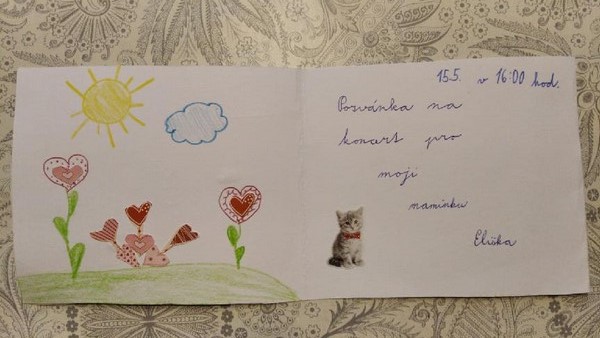 15.5. v 16:00 hod.
Pozvánka na
koncert pro
moji
maminku
Eliška